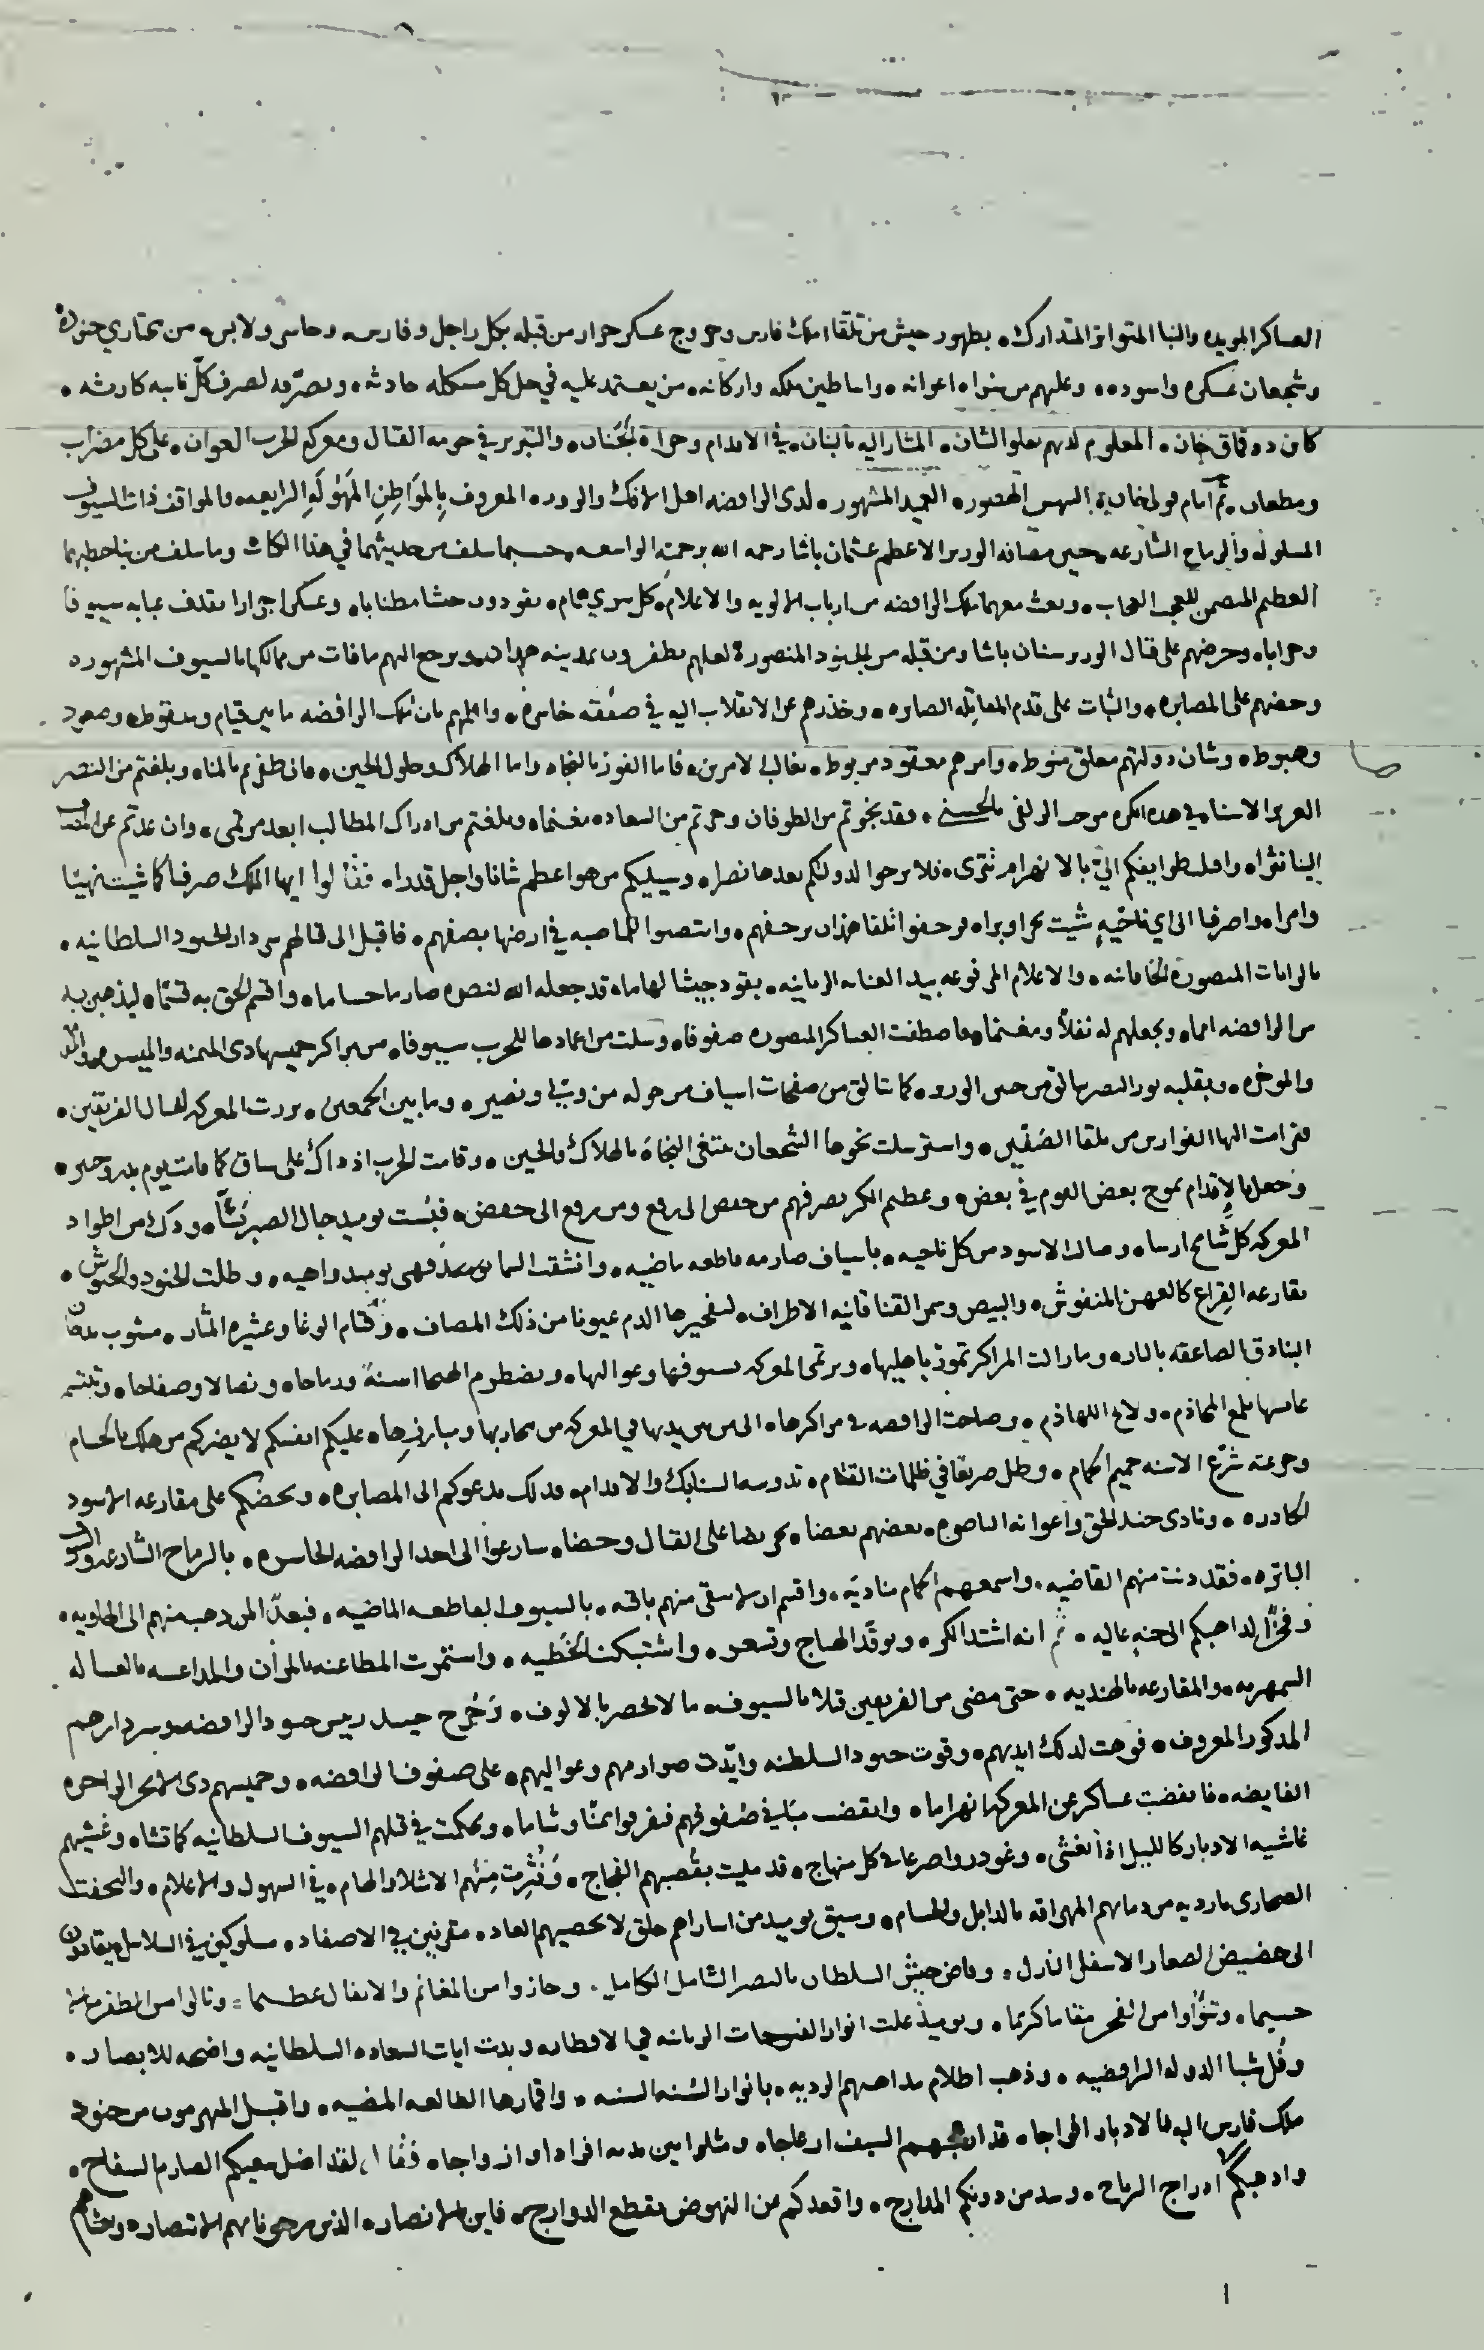 العساكر المويده والنبا المتواتر المتدارك، بظهور جيش من تلقا ملك فارس وخروج عسكر جرار من قبله بكل راجل وفارس، وحاسر ولابس، من مختاري جنوده
وشجعان عسكره واسوده، وعليهم من امراء اعوانه، واساطين ملكه واركانه، من يعتمد عليه في حل كل مشكله حادثه، وبصرفه لصرف كل نايبه كارثه،
كان دوقاق خان، المعلوم لديهم بعلو الشان، المشار اليه بالبنان، في الاقدام وجراة الجنان، والتبريز في حومه القتال ومعركه الحرب العوان، على كل مضراب
ومطعان، ثم امام قولى خان، الهصور، العميد المشهور، لدى الرافضه اهل الافك والزور، المعروف بالمواطن المهوله الرايعه، والمواقف ذات السيوف
المسلوله والرماح الشارعه، حين مصافه الوزير الاعظم عثمان باشا رحمه الله برحمته الواسعه، حسبما سلف من حديثهما في هذا الكتاب وما سلف من
العظيم المتضمن للعجب العجاب، وبعث معهما ملك الرافضه من ارباب الالويه والاعلام، كل سري همام، يقودون جيشا مطنابا، وعسكرا جرارا يقذف عبابه سيوفا
وحرابا، وحرضهم على قتال الوزير سنان باشا ومن قبله من الجنود المنصورة لعلهم يظفرون بمدينه همدان، ويرجع اليهم ما فات من ممالكها بالسيوف المشهوره
وحضهم على المصابره، والثبات على قدم المقاتله الصابره، وحذرهم عن الانقلاب اليه في صفقه خاسره، واعلمهم بان ملك الرافضه ما بين قيام وسقوط، وصعود
وهبوط، وشان دولتهم معلق منوط، وامرهم معقود مربوط، بغالب الامرين، فاما الفوز بالنجاه واما الهلاك وحلول الحين، فان ظفرتم بالمنا، وبلغتم من النصر
العزيز الاسنا، في هذه الكره الزلفى والحسنى، فقد نجوتم من الطوفان وحزتم من السعاده مغنما، وبلغتم من ادراك المطالب ابعد مرمى، وان عدتم عن
الينا نفرا، واقبلت طوايفكم الي بالانهزام تترى، فلا ترجوا لدولتكم بعدها نصرا، وسيليكم من هو اعظم شانا واجل قدرا، فقالوا ايها الملك صرفنا كما شيت نهيا
وامرا، واصرفنا الى اي ناحيه شيت بحرا وبرا، فزحفوا تلقا همدان بزحفهم، وانتصبوا للمناصبه في ارضها بصفهم، فاقبل الى قتالهم سردار الجنود السلطانيه،
بالرايات المنصورة الخاقانيه، والاعلام المرفوعه بيد العنايه الربانيه، يقود جيشا لهاما، قد جعله الله لنصره صارما حساما، واقسم الحق به قسما، ليذهبن به
من الرافضه امما، ويجعلهم له نفلا ومغنما، فاصطفت العساكر المنصوره صفوفا، وسلت من اغمادها للحرب سيوفا، من مراكز خميسها ذي الميمنه والميسره
والموخره، وبقلبه نور النصر يتالق من جبين الوزير، كما تتالق من صفحات اسياف من حوله من وزير ونصير، وما بين الجمعين، برزت المعركه لقتال الفريقين،
فترامت اليها الفوارس من ملقا الصفين، واسترسلت نحوها الشجعان تبتغي النجاة بالهلاك والحين، وقامت الحرب اذ ذاك على ساق كما قامت يوم بدر وحنين،
وجعل بالاقدام يموج بعض القوم في بعض، وعظيم الكر يصرفهم من خفض الى رفع ومن رفع الى خفض، فبُسّت يوميذ جبال الصبر بَسّا، ودك من اطواد
المعركه كل شامخ ارسا، وصالت الاسود من كل ناحيه، باسياف صارمه قاطعه ماضيه، وانشقت السما يوميذ فهي يوميذ واهيه، وظلت الجنود والجيوش،
بقارعه القراع كالعهن المنفوش، والبيض وسمر القنا قانيه الاطراف، لتفجيرها الدم عيونا من ذلك المصاف، وقتام الوغا وعثيره المثار، مشوب بدخان
البنادق الصاعقه بالنار، وما زالت المراكز تموز باهليها، وترتمي المعركه بسيوفها وعواليها، وتضطرم الهيجا اسنة ورماحا، ونصالا وصفاحا، وتبتسم
عن لمع المخاذم، ولامع اللهاذم، وصاحت الرافضه في مراكزها، الى من بين يديها في المعركه من محاربها ومبارزها، عليكم انفسكم لا يضركم من هلك بالحسام
وجرعته شرّع الاسنه حميم الحمام، وظل صريعا في ظلمات القتام، تدوسه السنابك والاقدام، فذلك يدعوكم الى المصابره، ويحضكم على مقارعه الاسود
الكادره، ونادى جند الحق واعوانه الناصره، بعضهم بعضا، تحريضا على القتال وحضا، سارعوا الى اخذ الرافضه الخاسره، بالرماح الشارعه والسيوف
الباتره، فقد دنت منهم القاضيه، واسمعهم الحمام مناديه، واقسم ان لا يبقى منهم باقيه، بالسيوف القاطعه الماضيه، فبعدا لمن ذهب منهم الى الهاويه،
وفخرا لذاهبكم الى جنه عاليه، ثم انه اشتد الكر، وتوقد الهياج وتسعر، واشتبكت الخطيه، واستمرت المطاعنه بالمران والمداعسه بالعساله
السمهريه، والمقارعه بالهنديه، حتى مضى من الفريقين قتلا بالسيوف، ما لا يحصر بالالوف، وجُرح حينيذ رييس جنود الرافضه وسردارهم
المذكور المعروف، فوهت لذلك ايديهم، وقوت جنود السلطنه وايّدت صوارمهم وعواليهم، على صفوف الرافضه، وخميسهم ذي الابحر الزاخره
الفايضه، فانفضت عساكر عن المعركه انهزاما، وانقضت مباني صفوفهم فتفرقوا يمنا وشاما، وتحكمت في قتلهم السيوف السلطانيه كما تشاء، وغشيهم
غاشيه الادبار كالليل اذا يغشى، وغودروا صرعا في كل منهاج، قد مليت بقصبهم الفجاج، ونُثِرت منهم الاشلاء والهام، في السهول والاعلام، والتحفت
الصحارى باردية من دمايهم المهراقه بالذابل والحسام، وسيق يوميذ من اساراهم خلق لا يحصيهم العاد، مقرنين في الاصفاد، مسلوكين في السلاسل يقادون
الى حضيض الصغار الاسفل النازل، وفاض جيش السلطان بالنصر الشامل الكامل، وحازوا من المغانم والانفال عظيما، ونالوا من الظفر مناما
جسيما، وتبوّأوا من الفخر مقاما كريما، ويوميذ علت انوار الفتوحات الربانيه في الاقطار، وبدت ايات السعاده السلطانيه واضحه للابصار،
وفُل شبا الدوله الرافضيه، وذهب اظلام مذاهبهم الرديه، بانوار السُنه السنيه، واقمارها الطالعه المضيه، واقبل المهزمون من جنود
ملك فارس اليه بالادبار افواجا، قد ازعجهم السيف ازعاجا، ومثلوا بين يديه افرادا وازواجا، فقال لقد اضل سعيكم الصارم السفاح،
واذهبكم ادراج الرياح، وسد من دونكم المدارج، واقعدكم عن النهوض بقطع الدوارج، فاين الانصار، الذين يرجى بامهم الانتصار،